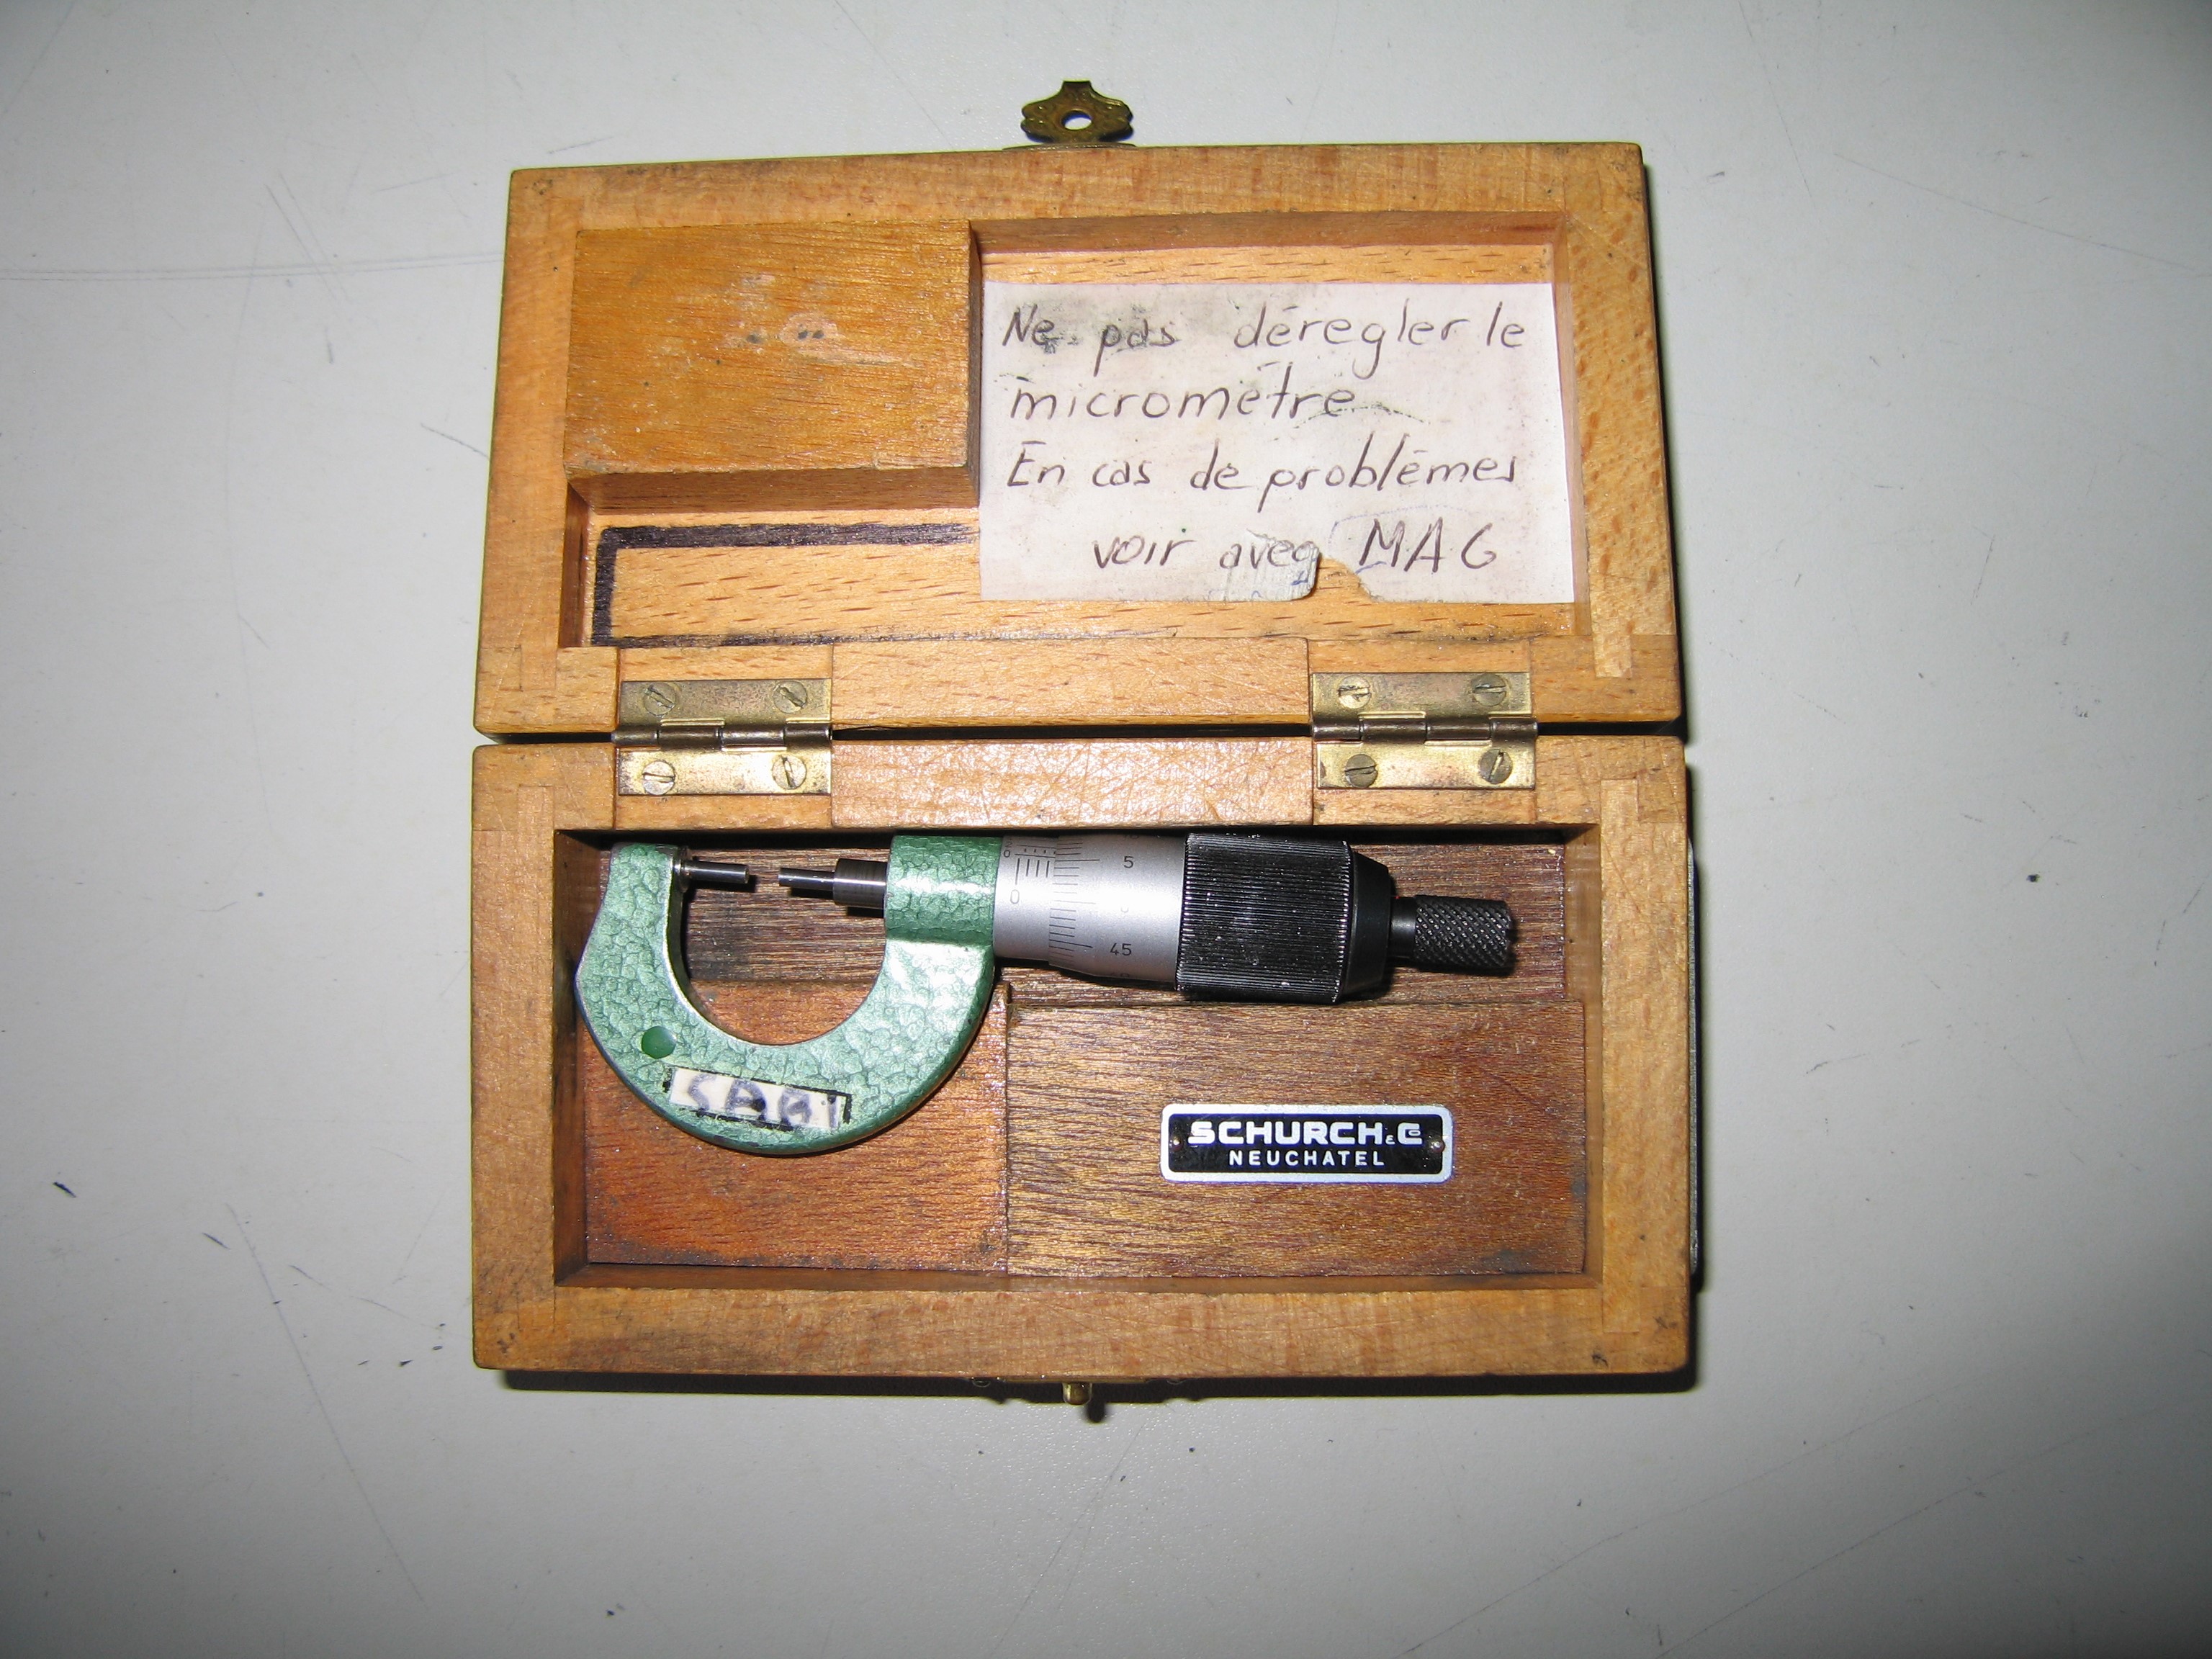 Ne pas déregler le
micromètre
En cas de problèmes
voir avec MAG
0
0
5
45
SCHURCH & Co
NEUCHATEL